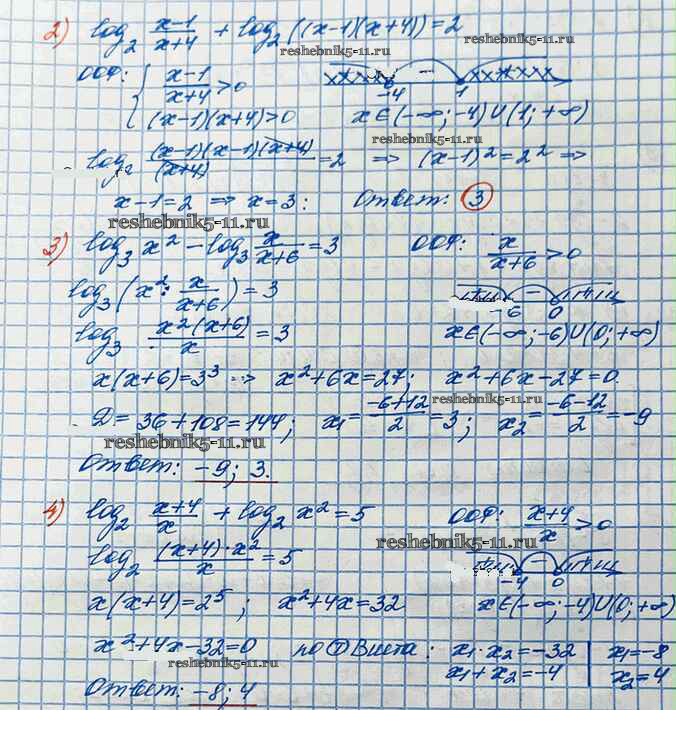 2) log₂ (x-1)/(x+4) + log₂((x-1)(x+4)) = 2
reshebnik5-11.ru
ООФ: { (x-1)/(x+4) > 0
-4 - 1
(x-1)(x+4) > 0 x∈(-∞;-4)∪(1;+∞)
reshebnik5-11.ru
log₂ (x-1)(x-1)(x+4)/(x+4) = 2 => (x-1)² = 2² =>
x-1=2 => x=3; Ответ: 3
reshebnik5-11.ru
3) log₃ x² - log₃ x/(x+6) = 3 ООФ: x/(x+6) > 0
log₃(x² : x/(x+6)) = 3
-6 - 0
log₃ x²(x+6)/x = 3 x∈(-∞;-6)∪(0;+∞)
x(x+6)=3³ => x²+6x=27; x²+6x-27=0.
reshebnik5-11.ru
D = 36+108=144; x₁=(-6+12)/2=3; x₂=(-6-12)/2=-9
reshebnik5-11.ru
Ответ: -9; 3.
4) log₂ (x+4)/x + log₂ x² = 5 ООФ: (x+4)/x > 0
reshebnik5-11.ru
log₂ (x+4)·x²/x = 5
-4 - 0
x(x+4)=2⁵; x²+4x=32 x∈(-∞;-4)∪(0;+∞)
x²+4x-32=0 по Т Виета: x₁·x₂=-32 | x₁=-8
reshebnik5-11.ru
x₁+x₂=-4 | x₂=4
Ответ: -8; 4